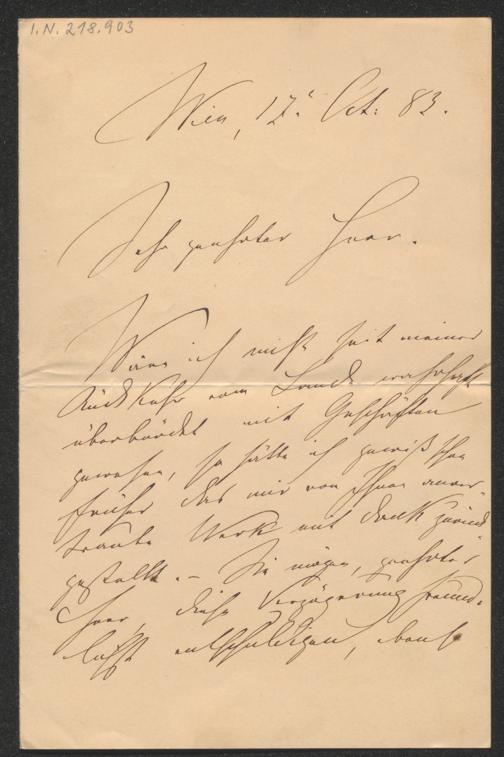 I.N. 218.903
Wien, 17. Oct. 83.
Sehr geehrter Herr.
Wäre ich nicht seit meiner
Rückkehr vom Lande wahrhaft
überbürdet mit Geschäften
gewesen, so hätte ich gewiß schon
früher das mir von Ihnen anver-
traute Werk mit Dank zurück-
gestellt. – Sie mögen, geehrter
Herr, diese Verzögerung freund-
lichst entschuldigen, ebenso